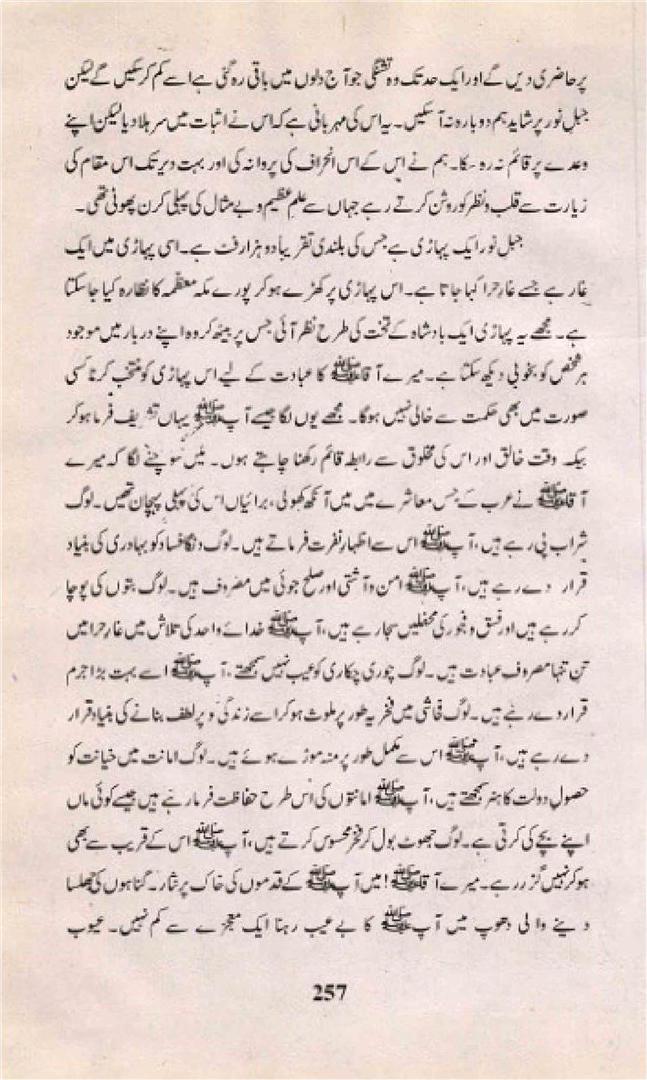 پر حاضری دیں گے اور ایک حد تک وہ تشنگی جو آج دلوں میں باقی رہ گئی ہے اسے کم کر سکیں گے لیکن
جبل نور پر شاید ہم دوبارہ نہ آ سکیں۔ یہ اس کی مہربانی ہے کہ اس نے اثبات میں سر ہلا دیا لیکن اپنے
وعدے پر قائم نہ رہ سکا۔ ہم نے اس کے اس انحراف کی پروا نہ کی اور بہت دیر تک اس مقام کی
زیارت سے قلب و نظر کو روشن کرتے رہے جہاں سے علمِ عظیم و بے مثال کی پہلی کرن پھوٹی تھی۔
جبل نور ایک پہاڑی ہے جس کی بلندی تقریباً دو ہزار فٹ ہے۔ اسی پہاڑی میں ایک
غار ہے جسے غارِ حرا کہا جاتا ہے۔ اس پہاڑی پر کھڑے ہو کر پورے مکہ معظمہ کا نظارہ کیا جا سکتا
ہے۔ مجھے یہ پہاڑی ایک بادشاہ کے تخت کی طرح نظر آئی جس پر بیٹھ کر وہ اپنے دربار میں موجود
ہر شخص کو بخوبی دیکھ سکتا ہے۔ میرے آقا ﷺ کا عبادت کے لیے اس پہاڑی کو منتخب کرنا کسی
صورت میں بھی حکمت سے خالی نہیں ہوگا۔ مجھے یوں لگا جیسے آپ ﷺ یہاں تشریف فرما ہو کر
بیک وقت خالق اور اس کی مخلوق سے رابطہ قائم رکھنا چاہتے ہوں۔ میں سوچنے لگا کہ میرے
آقا ﷺ نے عرب کے جس معاشرے میں میں آنکھ کھولی، برائیاں اس کی پہلی پہچان تھیں۔ لوگ
شراب پی رہے ہیں، آپ ﷺ اس سے اظہارِ نفرت فرماتے ہیں۔ لوگ دنگا فساد کو بہادری کی بنیاد
قرار دے رہے ہیں، آپ ﷺ امن و آشتی اور صلح جوئی میں مصروف ہیں۔ لوگ بتوں کی پوجا
کر رہے ہیں اور فسق و فجور کی محفلیں سجا رہے ہیں، آپ ﷺ خدائے واحد کی تلاش میں غارِ حرا میں
تن تنہا مصروف عبادت ہیں۔ لوگ چوری چکاری کو عیب نہیں سمجھتے، آپ ﷺ اسے بہت بڑا جرم
قرار دے رہے ہیں۔ لوگ فحاشی میں فخریہ طور پر ملوث ہو کر اسے زندگی کو پر لطف بنانے کی بنیاد قرار
دے رہے ہیں، آپ ﷺ اس سے مکمل طور پر منہ موڑے ہوئے ہیں۔ لوگ امانت میں خیانت کو
حصولِ دولت کا ہنر سمجھتے ہیں، آپ ﷺ امانتوں کی اس طرح حفاظت فرما رہے ہیں جیسے کوئی ماں
اپنے بچے کی کرتی ہے۔ لوگ جھوٹ بول کر فخر محسوس کرتے ہیں، آپ ﷺ اس کے قریب سے بھی
ہو کر نہیں گزر رہے۔ میرے آقا ﷺ! میں آپ ﷺ کے قدموں کی خاک پر نثار۔ گناہوں کی جھلسا
دینے والی دھوپ میں آپ ﷺ کا بے عیب رہنا ایک معجزے سے کم نہیں۔ عیوب
257